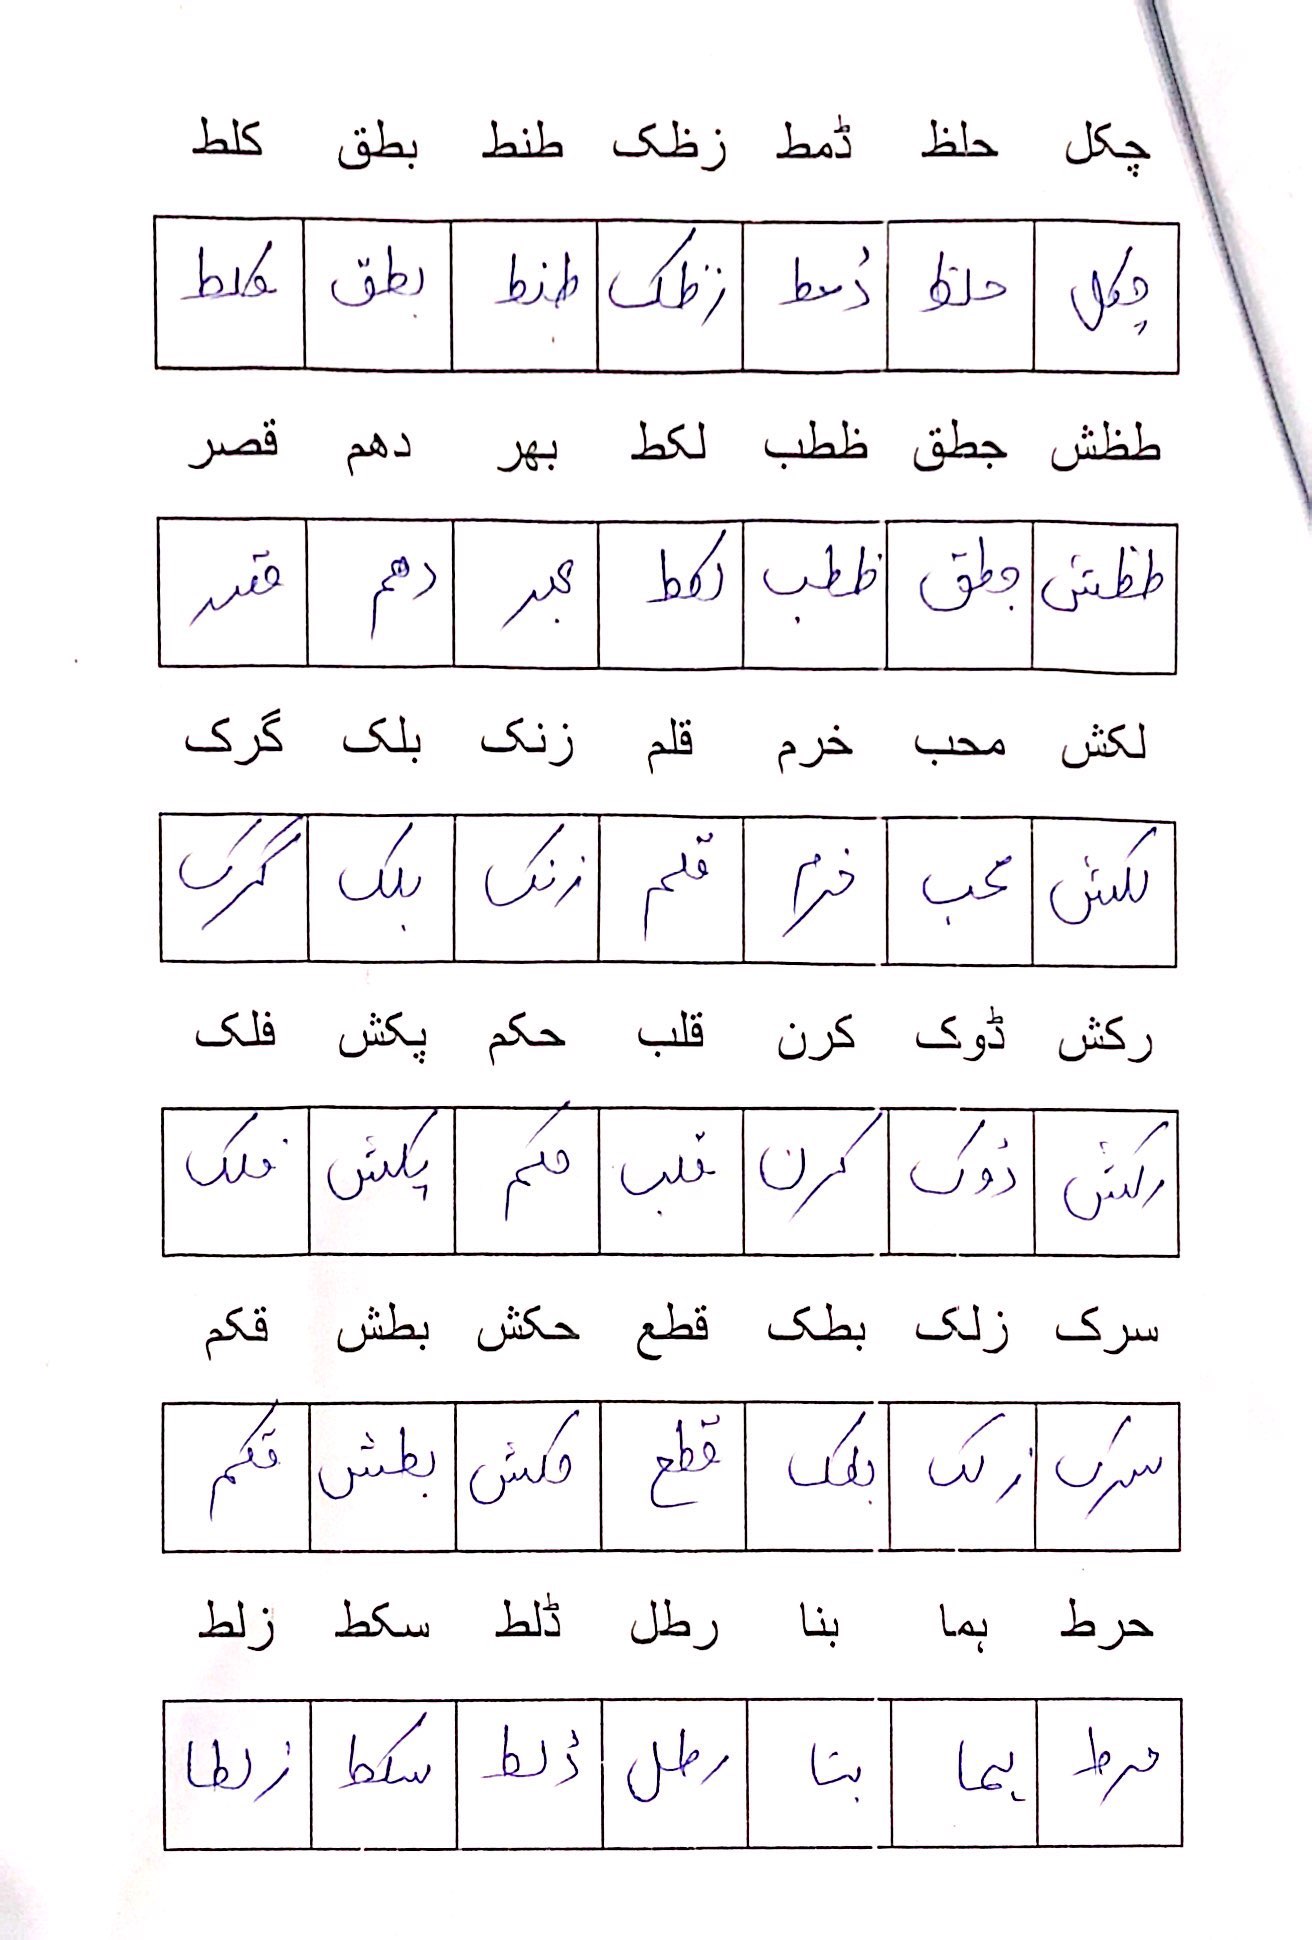 چکل حلظ ڈمط زظک طنط بطق کلط
چکل حلظ ڈمط زظک طنط بطق کلط
طظش جطق ظطب لکط بھر دھم قصر
طظش جطق ظطب لکط بھر دھم قصر
لکش محب خرم قلم زنک بلک گرک
لکش محب خرم قلم زنک بلک گرک
رکش ڈوک کرن قلب حکم پکش فلک
رکش ڈوک کرن قلب حکم پکش فلک
سرک زلک بطک قطع حکش بطش قکم
سرک زلک بطک قطع حکش بطش قکم
حرط ہما بنا رطل ڈلط سکط زلط
حرط ہما بنا رطل ڈلط سکط زلط